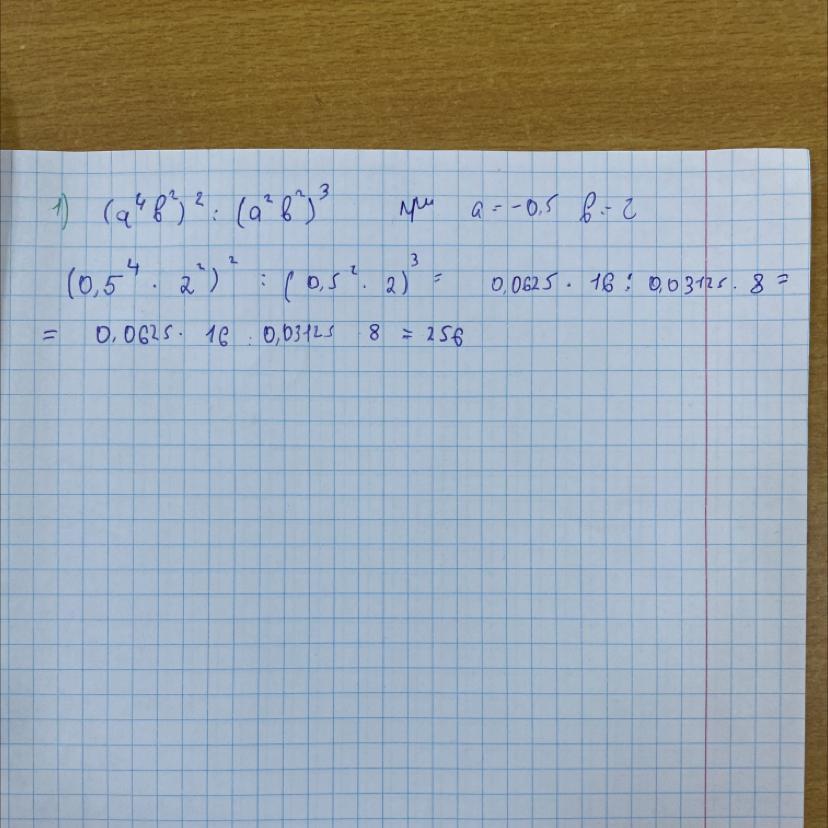 1) (a⁴b²)² : (a²b²)³ при a = -0,5 b = 2
(0,5⁴ · 2²)² : (0,5² · 2)³ = 0,0625 · 16 : 0,03125 · 8 =
= 0,0625 · 16 : 0,03125 · 8 = 256